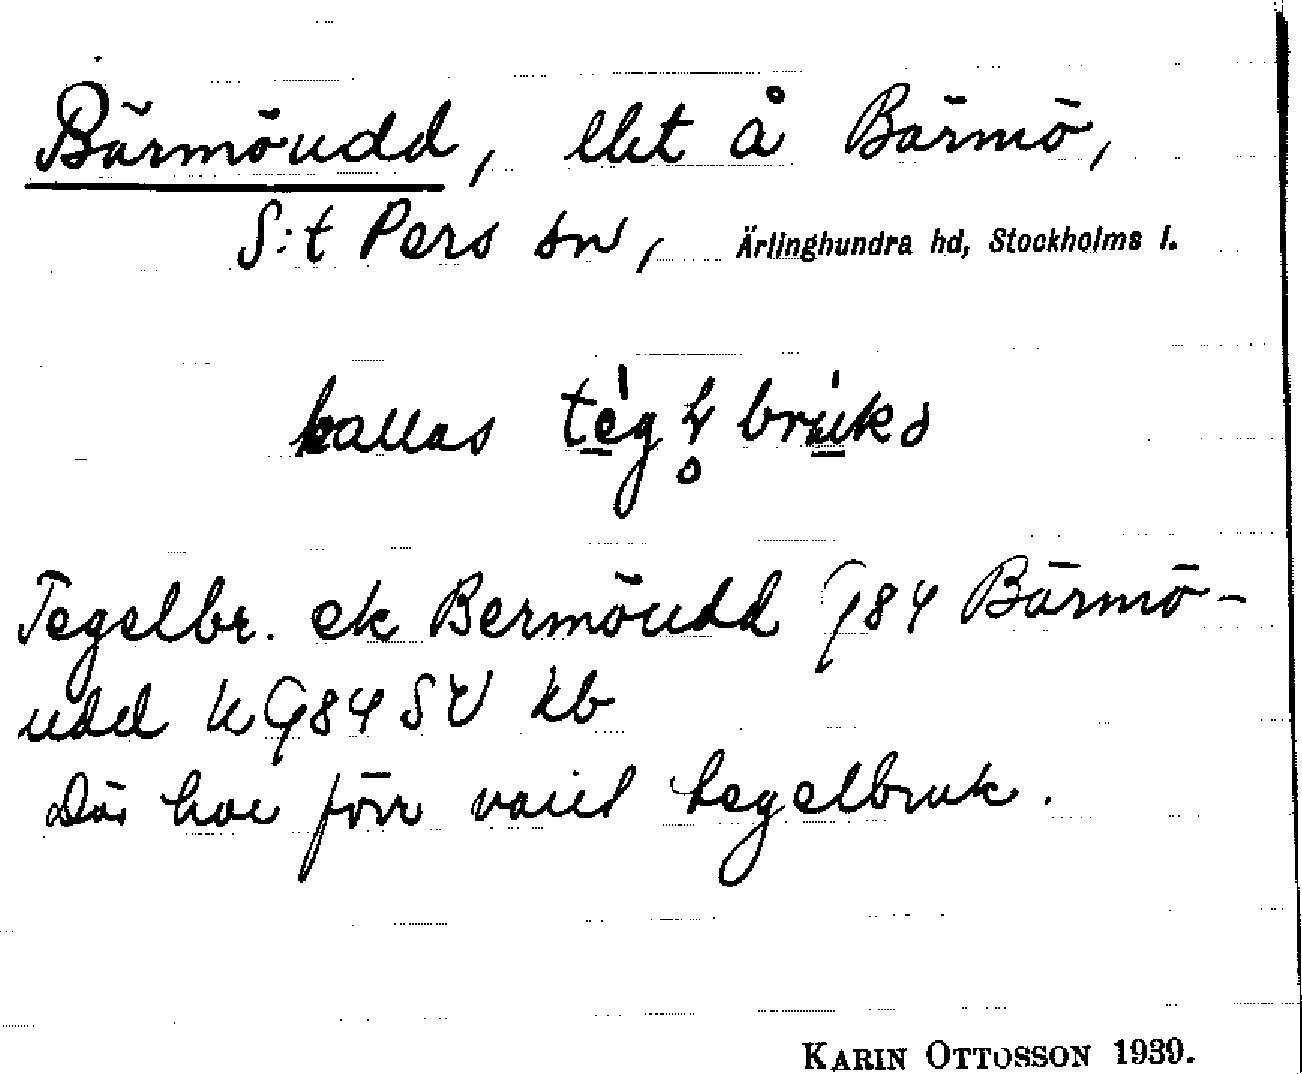 Bärmöudd, lht å Bärmö,
S:t Pers sn, Ärlinghundra hd, Stockholms l.
kallas
Tegelbr. ek Bermöudd G84 Bärmö-
udd K G84 SV kb
Där har förr varit tegelbruk.
KARIN OTTOSSON 1939.